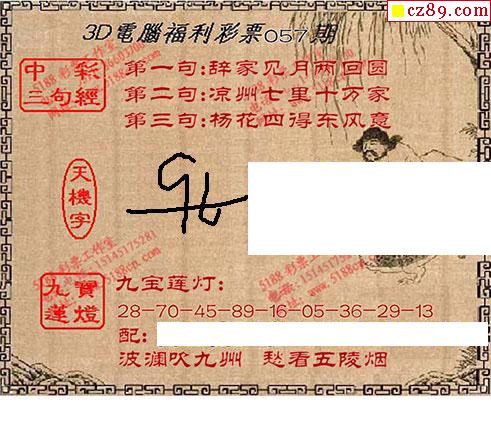 cz89.com
3D電腦福利彩票057期
中彩
三句經
第一句:辞家见月两回圆
第二句:凉州七里十万家
第三句:杨花四得东风意
天機字
96
九寶
蓮燈
九宝莲灯:
28-70-45-89-16-05-36-29-13
配:
波澜吹九州 愁看五陵烟